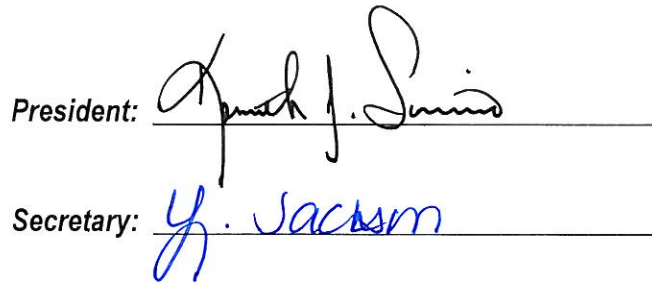 President: Kenneth J.
Secretary: Y. Jackson